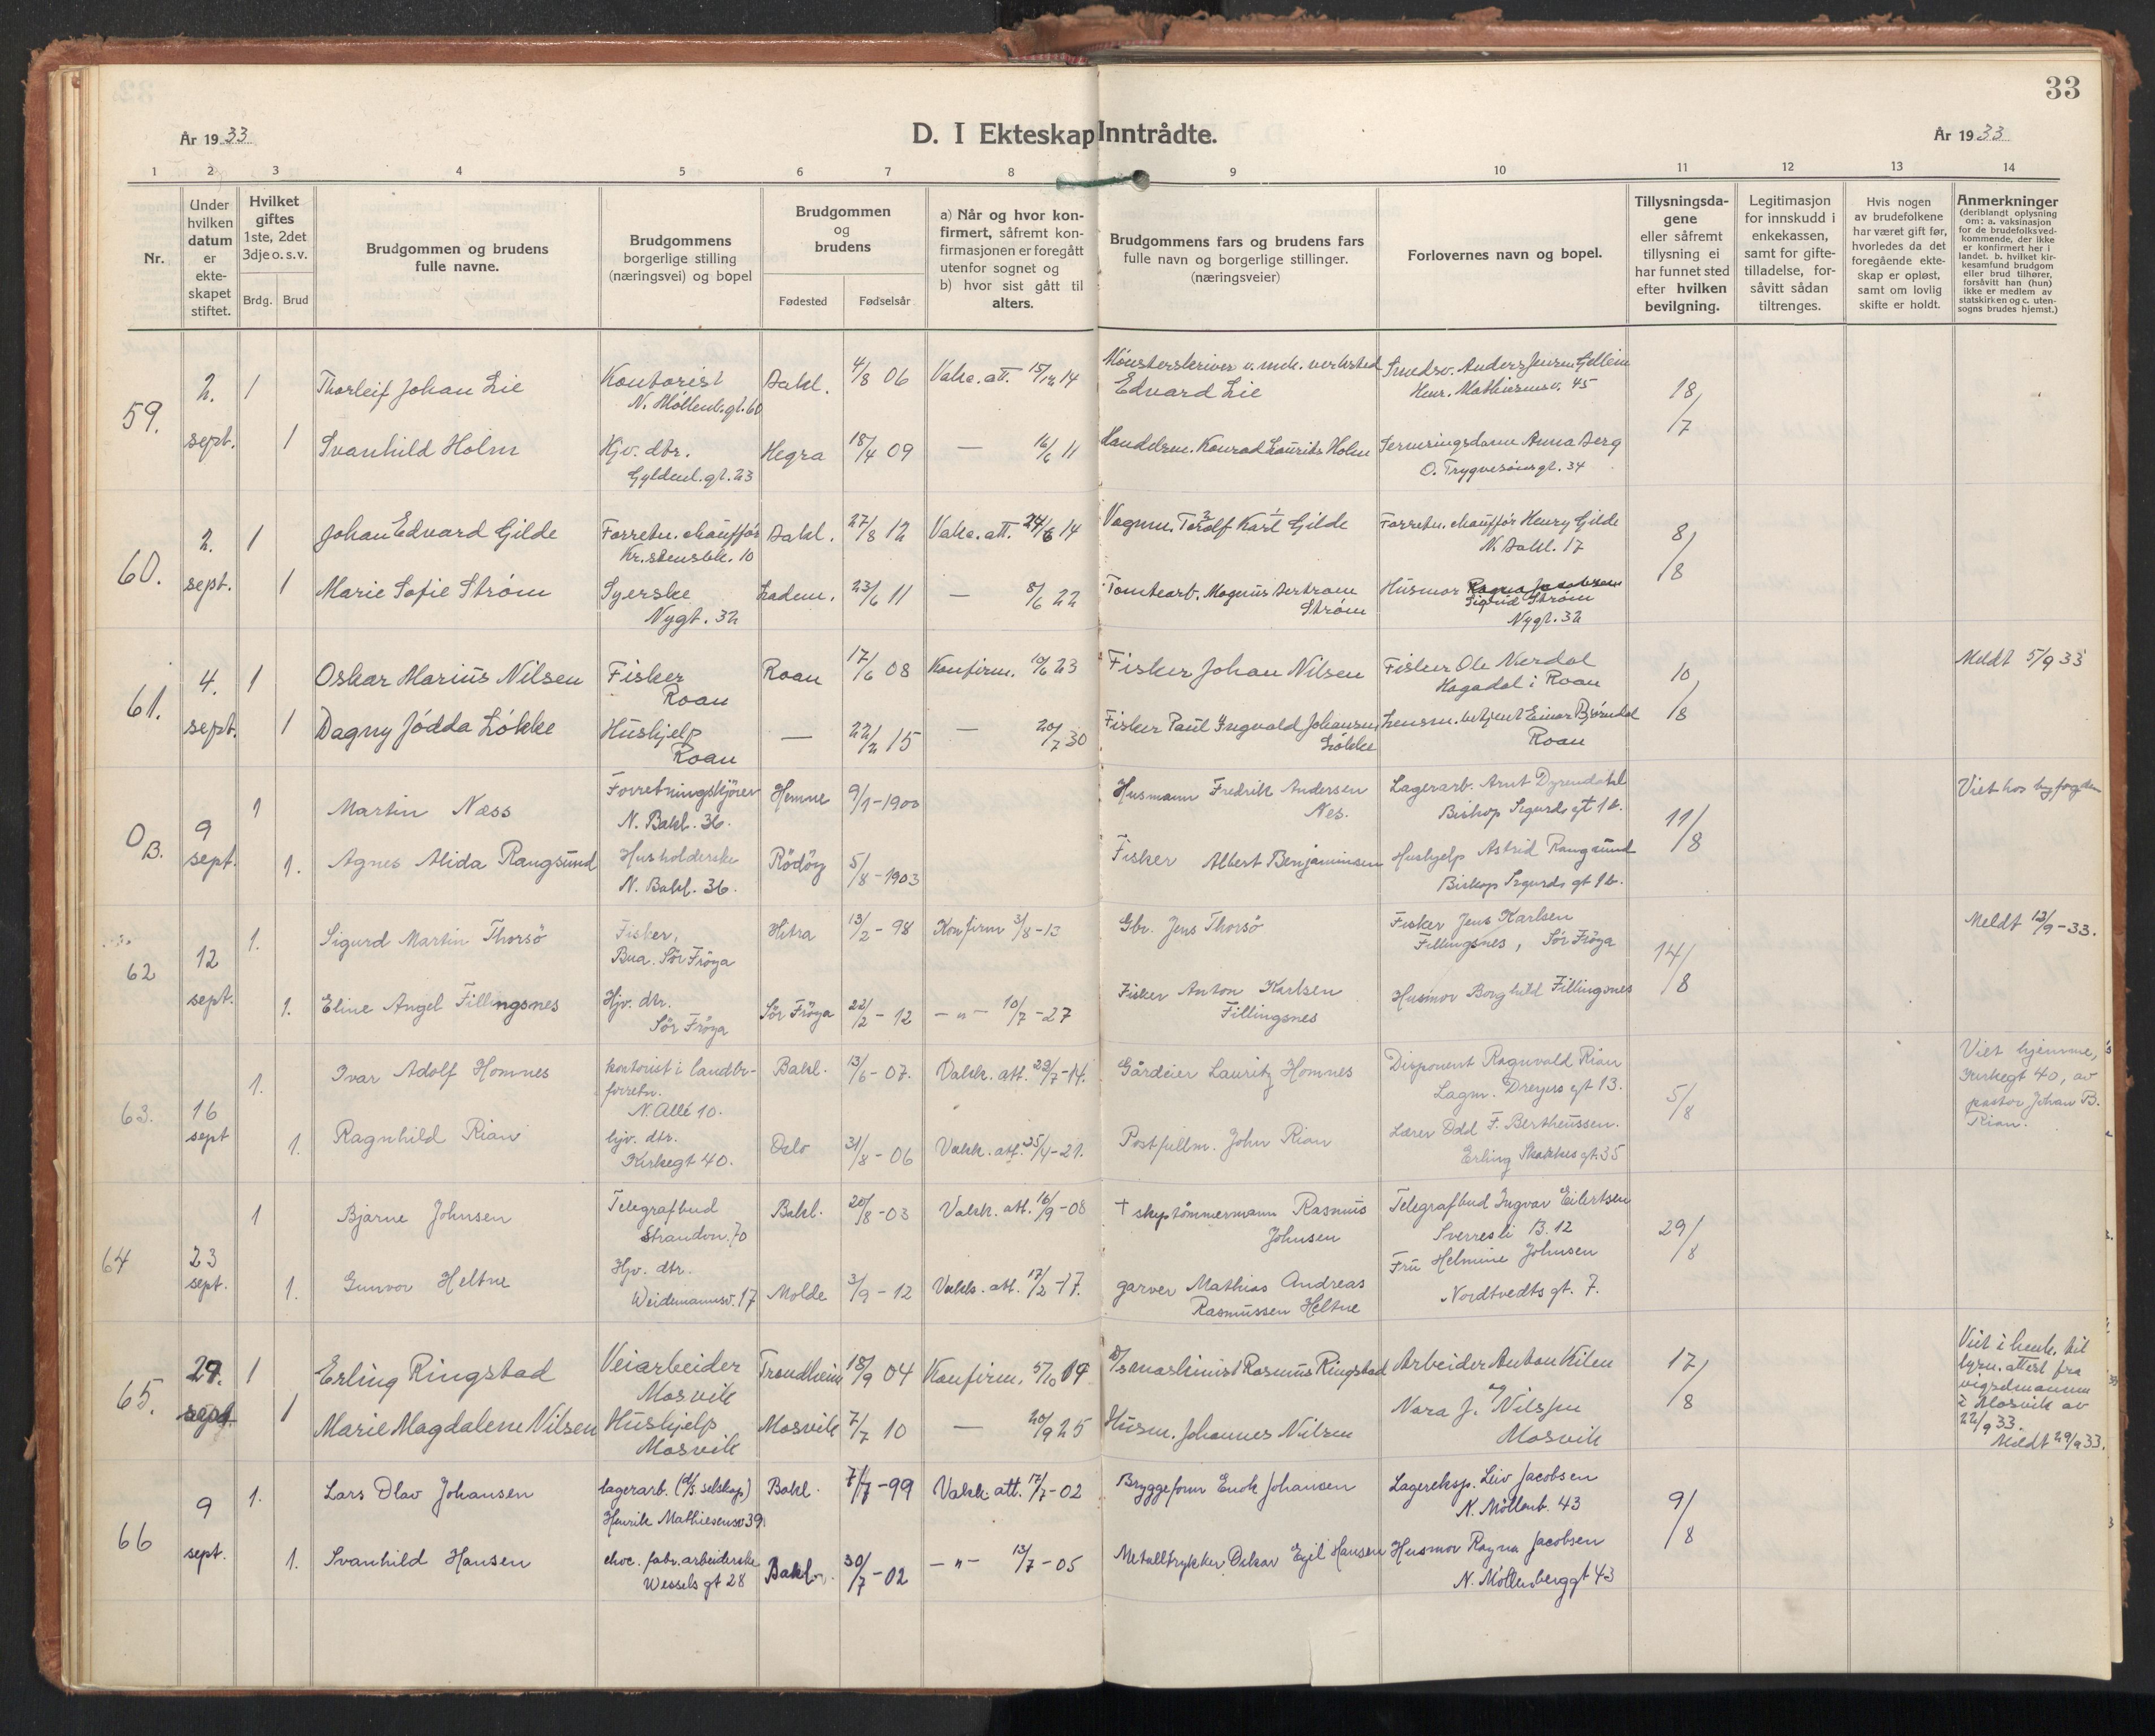 33
År 1933
D. I Ekteskap Inntrådte.
År 1933
1 2 3 4 5 6 7 8 9 10 11 12 13 14
Nr.
Under hvilken datum er ekte- skapet stiftet.
Hvilket giftes 1ste, 2det 3dje o. s. v.
Brdg. Brud
Brudgommen og brudens fulle navne.
Brudgommens borgerlige stilling (næringsvei) og bopel
Brudgommen og brudens
Fødested Fødselsår
a) Når og hvor kon- firmert, såfremt kon- firmasjonen er foregått utenfor sognet og b) hvor sist gått til alters.
Brudgommens fars og brudens fars fulle navn og borgerlige stillinger. (næringsveier)
Forlovernes navn og bopel.
Tillysningsda- gene eller såfremt tillysning ei har funnet sted efter hvilken bevilgning.
Legitimasjon for innskudd i enkekassen, samt for gifte- tilladelse, for- såvitt sådan tiltrenges.
Hvis nogen av brudefolkene har været gift før, hvorledes da det foregående ekte- skap er opløst, samt om lovlig skifte er holdt.
Anmerkninger (deriblandt oplysning om: a. vaksinasjon for de brudefolksved- kommende, der ikke er konfirmert her i landet. b. hvilket kir- kesamfund brudgom eller brud tilhører, forsåvitt han (hun) ikke er medlem av statskirken og c. uten- sogns brudes hjemst.)
59. 2. sept. 1 Thorleif Johan Lie Kontorist Bakl. 4/8 06 Vakc. att. 15/12 14 Mønsterskriver v. mek. verksted
N. Møllenb.gt. 60 Edvard Lie Henr. Mathiesensv. 45 18/7
1 Svanhild Holm Hjv. dtr. Hegra 18/4 09 — 16/6 11 Handelsm. Konrad Laurits Holm Serveringsdame Anna Berg
Gyldenl.gt. 23 O. Trygvesønsgt. 34
60. 2. sept. 1 Johan Edvard Gilde Forretn. chauffør Bakl. 27/8 12 Vakc. att. 24/6 14 Vognm. Torolf Karl Gilde Forretn. chauffør Henry Gilde 8/8
Kr.stensbk. 10 N. Bakl. 17
1 Marie Sofie Strøm Syerske Ladem. 23/6 11 — 8/6 22 Tomtearb. Magnus Bertram Husmor
Nygt. 32 Strøm Sigrid Strøm
Nygt. 32
61. 4. sept. 1 Oskar Marius Nilsen Fisker Roan 17/6 08 Konfirm. 10/6 23 Fisker Johan Nilsen Fisker Ole Nerdal 10/8 Meldt 5/9 33
Roan Hagadal i Roan
1 Dagny Jødda Løkke Hushjelp — 22/2 15 — 20/7 30 Fisker Paul Ingvald Johansen Lensm. betjent Einar Bjørndal
Roan Løkke Roan
0B. 9 sept. 1 Martin Næss Forretningskjører Hemne 9/1-1900 Husmann Fredrik Andersen Lagerarb. Arnt Dyrendahl 11/8 Viet hos byfogden
N. Bakl. 36. Nes. Biskop Sigurds gt 1b.
1. Agnes Alida Rangsund Husholderske Rödöy 5/8-1903 Fisker Albert Benjaminsen Hushjelp Astrid Rangsund
N. Bakl. 36. Biskop Sigurds gt 1b.
62 12 sept. 1. Sigurd Martin Thorsö Fisker, Hitra 13/2-98 Konfirm 3/8-13 Gbr. Jens Thorsö Fisker Jens Karlsen 14/8 Meldt 12/9-33.
Bua. Sör Fröya Fillingsnes, Sör Fröya
1. Eline Angel Fillingsnes Hjv. dtr. Sör Fröya 22/2-12 -"- 10/7-27 Fisker Anton Karlsen Husmor Borghild Fillingsnes
Sör Fröya Fillingsnes
63. 16 sept 1. Ivar Adolf Homnes kontorist i landbr- Bakl. 13/6-07. Vakk. att. 22/7-14. Gårdeier Lauritz Homnes Disponent Ragnvald Rian 5/8 Viet hjemme,
forretn. Lagm. Dreyers gt 13. Kirkegt 40, av
N. Allé 10. pastor Johan B.
1. Ragnhild Rian hjv. dtr. Oslo 31/8-06 Vakk. att. 25/4-21. Postfullm. John Rian Lærer Odd F. Bertheussen. Rian.
Kirkegt 40. Erling Skakkes gt. 35
64 23 sept. 1 Bjarne Johnsen Telegrafbud Bakl. 20/8-03 Vakk. att. 16/9-08 † skipstömmermann Rasmus Telegrafbud Ingvar Eilertsen 29/8
Strandvn. 70 Johnsen Sverresli B. 12
1. Gunvor Heltne Hjv. dtr. Molde 3/9-12 Vakk. att. 17/2-17. garver Mathias Andreas Fru Helmine Johnsen
Weidemannsv. 17 Rasmussen Heltne Nordtvedts gt. 7.
65. 29. sept. 1 Erling Ringstad Veiarbeider Trondheim 18/9 04 Konfirm. 5/10 19 D/smaskinist Rasmus Ringstad Arbeider Anton Kilen 17/8 Viet i henh. til
Mosvik og lysn. attest fra
1 Marie Magdalene Nilsen Hushjelp Mosvik 7/7 10 — 20/9 25 Husm. Johannes Nilsen Nora J. Nilssen vigselmannen
Mosvik Mosvik i Mosvik av
22/9 33.
Meldt 29/9 33.
66 9 sept. 1. Lars Olav Johansen lagerarb. (d/s. selskap) Bakl. 7/7-99 Vakk. att. 17/7-02 Bryggeform Enok Johansen Lagereksp. Leiv Jacobsen 9/8
Henrik Mathiesensv 39. N. Möllenb. 43
1. Svanhild Hansen choc. fabr. arbeiderske Bakl. 30/7-02 -"- 13/7-05 Metalltrykker Oskar Egil Hansen Husmor Ragna Jacobsen
Wessels gt 28 N. Möllenberggt 43